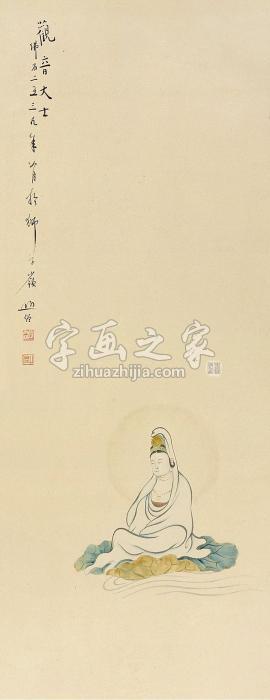 觀音大士
佛曆二五三九年八月於獅子嶺
字画之家
zihuazhijia.com